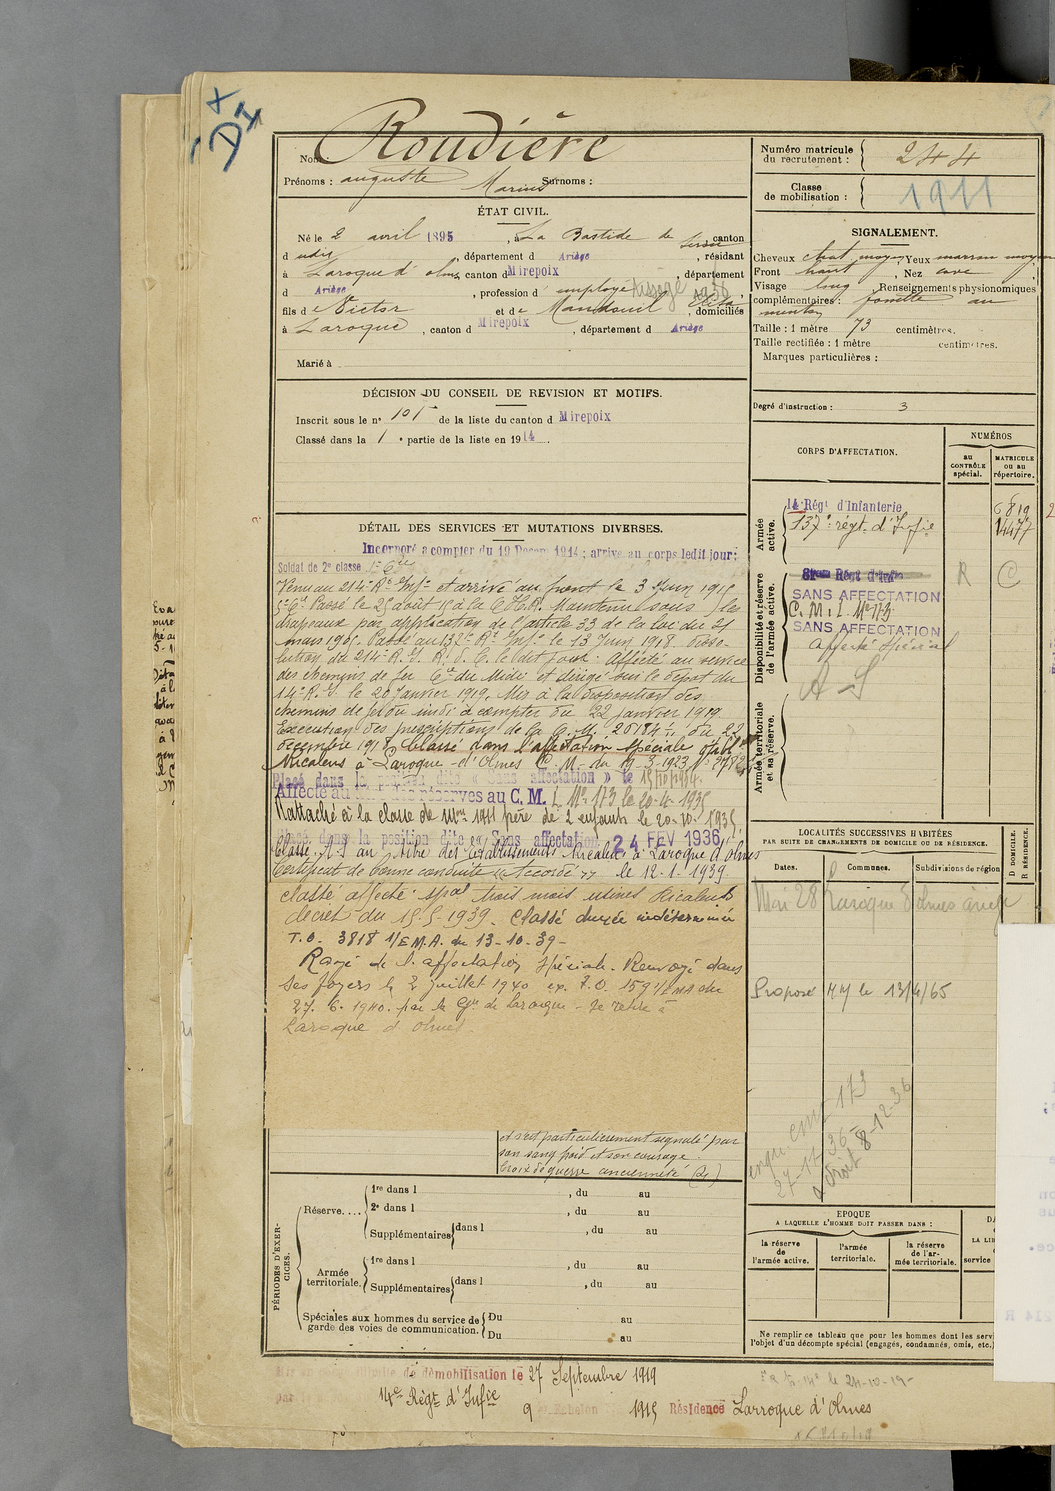 +
DI
Nom: Roudière
Prénoms : auguste Marius Surnoms :
Numéro matricule du recrutement : 244
Classe de mobilisation : 1911
ÉTAT CIVIL.
Né le 2 avril 1895, à La Bastide de canton
d udit, département d Ariège, résidant
à Laroque d'olmes, canton d Mirepoix, département
d Ariège, profession d' employé
fils de Victor et de domiciliés
à Laroque, canton d Mirepoix, département d Ariège
Marié à
SIGNALEMENT.
Cheveux chat. moyen, Yeux marron moyen
Front haut, Nez cave
Visage long, Renseignements physionomiques
complémentaires : fossette au
menton
Taille : 1 mètre 73 centimètres.
Taille rectifiée : 1 mètre centimètres.
Marques particulières :
Degré d'instruction : 3
DÉCISION DU CONSEIL DE REVISION ET MOTIFS.
Inscrit sous le n° 105 de la liste du canton d Mirepoix
Classé dans la 1e partie de la liste en 1914.
CORPS D'AFFECTATION.
NUMÉROS
AU CONTRÔLE spécial.
MATRICULE ou au répertoire.
Armée active.
14 Régt d'Infanterie 6819
137e régt. d'Infie 14477
Disponibilité et réserve de l'armée active.
Régt d'Infie R C
SANS AFFECTATION
C. M. I. No 173
SANS AFFECTATION
affecté spécial
A S
Armée territoriale et sa réserve.
DÉTAIL DES SERVICES ET MUTATIONS DIVERSES.
Incorporé a compter du 19 Décem 1914 ; arrivé au corps ledit jour:
Soldat de 2e classe
Venu au 214e Rt Inf et arrivé au front le 3 Juin 1915
5e Cie. Passé le 25 août 15 à la C.H.R. Maintenu sous les
drapeaux par application de l'article 33 de la loi du 21
mars 1905. Passé au 132e Rt Infie le 13 Juin 1918. Disso-
lution du 214e R.I. affecté au service
des chemins de fer Cie du Midi et dirigé sur le dépôt du
14e R.I. le 20 Janvier 1919. Mis à la disposition des
chemins de fer du midi à compter du 22 janvier 1919.
Exécution des prescriptions de la C.M. du 22
décembre 1918. Classé dans l'affectation spéciale
Ricalens à Laroque-d'Olmes C.M. du 19-3-1923
Placé dans la position dite « Sans affectation » le 15/10/1934.
Affecté au des réserves au C. M. I. No 173 le 20-4-1935
Rattaché à la classe de 1911 père de 2 enfants le 20-10-1935.
Placé dans la position dite « Sans affectation 24 FEV 1936
Classé A.S au titre des établissements Ricalens à Laroque d'Olmes
Certificat de bonne conduite "Accordé" le 12.1.1939.
Classé affecté spal trois mois usines Ricalens
décret du 15-5-1939. Classé durée indéterminée
T.O. 3818 1/E.M.A. du 13-10-39-
Rayé de l'affectation Spéciale. Renvoyé dans
ses foyers le 2 juillet 1940 ex. T.O. 1591/EMA du
27.6.1940. par la Gie de Laroque - Se retire à
Laroque d'olmes
et s'est particulièrement signalé par
son sang froid et son courage.
Croix de guerre ancienneté
LOCALITÉS SUCCESSIVES HABITÉES
PAR SUITE DE CHANGEMENTS DE DOMICILE OU DE RÉSIDENCE.
Dates. Communes. Subdivisions de région
D DOMICILE.
R RÉSIDENCE.
Mai 28 Laroque d'olmes ariège
Proposé MM le 13/4/65
173
27-11-36-
8-12-36
PÉRIODES D'EXERCICES.
Réserve.... 1re dans l , du au
2e dans l , du au
Supplémentaires dans l , du au
Armée territoriale. 1re dans l , du au
Supplémentaires dans l , du au
Spéciales aux hommes du service de garde des voies de communication. Du au
Du au
EPOQUE
A LAQUELLE L'HOMME DOIT PASSER DANS :
la réserve de l'armée active.
l'armée territoriale.
la réserve de l'armée territoriale.
Ne remplir ce tableau que pour les hommes dont les servi
l'objet d'un décompte spécial (engagés, condamnés, omis, etc.)
de démobilisation le 27 Septembre 1919
14e Régt d'Infie
9 Echelon 1919 Résidence Larroque d'Olmes